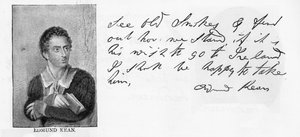 See old Smskey & find
out how we stand, if it is
his wish to go to Ireland
I shall be happy to take
him,
Edmd Kean
EDMUND KEAN.